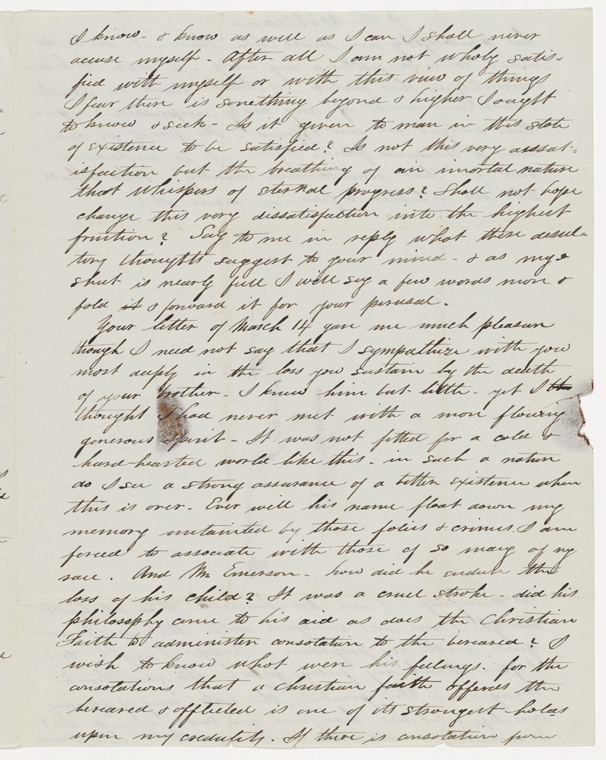 I know - & know as well as I can I shall never
accuse myself - After all I am not wholy satis-
fied with myself or with this view of things
I fear there is something beyond & higher I ought
to know & seek - Is it given to man in this state
of existence to be satisfied? Is not this very dissat-
isfaction but the breathing of an imortal nature
that whispers of eternal progress? Shall not hope
change this very dissatisfaction into the highest
fruition? Say to me in reply what these desul-
tory thoughts suggest to your mind - & as my
sheet is nearly full I will say a few words more &
fold it & forward it for your perusal.
Your letter of March 14 gave me much pleasure
though I need not say that I sympathize with you
most deeply in the loss you sustain by the death
of your brother - I knew him but little - yet I
thought I had never met with a more flowing
generous spirit - It was not fitted for a cold &
hard hearted world like this - in such a nature
do I see a strong assurance of a better existence when
this is over. Ever will his name float down my
memory untainted by those folies & crimes I am
forced to associate with those of so many of my
race. And Mr Emerson - how did he endure the
loss of his child? It was a cruel stroke - did his
philosophy come to his aid as does the Christian
Faith to administer consolation to the bereaved? I
wish to know what were his feelings. for the
consolations that a christian faith offeres the
bereaved & afflicted is one of its strongest holds
upon my credulity. If there is consolation from